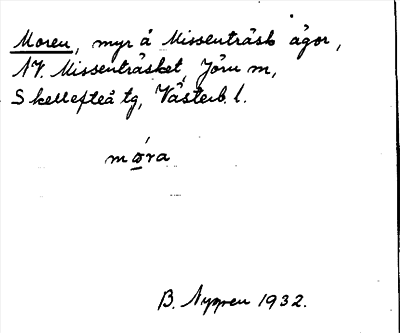 Moren, myr å Missenträsk ägor,
NV. Missenträsket, Jörn m,
Skellefteå tg, Västerb. l.
mora
B. Nygren 1932.